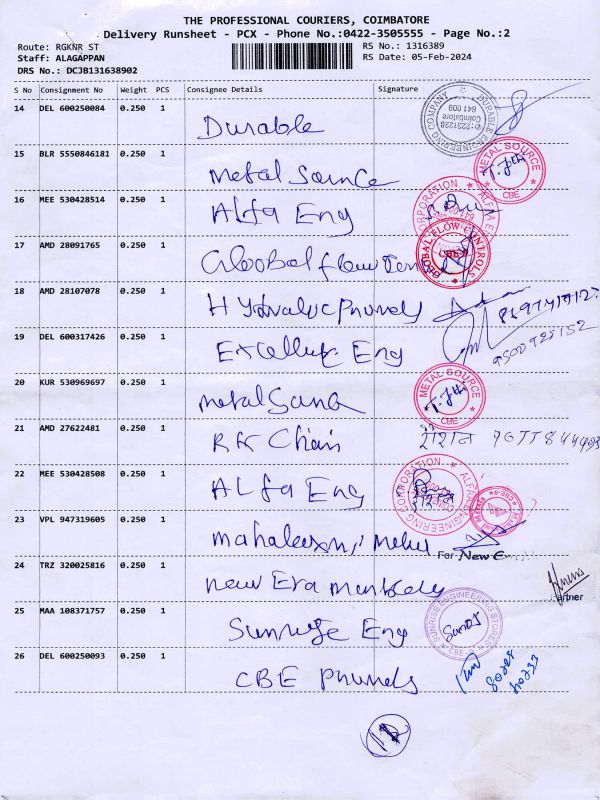 THE PROFESSIONAL COURIERS, COIMBATORE
Delivery Runsheet - PCX - Phone No.:0422-3505555 - Page No.:2
Route: RGKNR ST
RS No.: 1316389
Staff: ALAGAPPAN
RS Date: 05-Feb-2024
DRS No.: DCJB131638902
S No Consignment No Weight PCS Consignee Details Signature
14 DEL 600250084 0.250 1 Durable
DURABLE ENGINEERING COMPANY ✆:2231228 Coimbatore 641 009
15 BLR 5550846181 0.250 1 metal Source
METAL SOURCE CBE
16 MEE 530428514 0.250 1 Alfa Eng
17 AMD 28091765 0.250 1 Gloobal flow Con
GLOBAL FLOW CONTROLS
18 AMD 28107078 0.250 1
19 DEL 600317426 0.250 1 Eng
20 KUR 530969697 0.250 1 metal
METAL SOURCE CBE
21 AMD 27622481 0.250 1 RK Chain
22 MEE 530428508 0.250 1 ALfa Eng
ALFA ENGINEERING CORPORATION
23 VPL 947319605 0.250 1
For New E
24 TRZ 320025816 0.250 1 New Era
Partner
25 MAA 108371757 0.250 1 Sunrise Eng
SUNRISE ENGINEERING STORES CBE
26 DEL 600250093 0.250 1 CBE